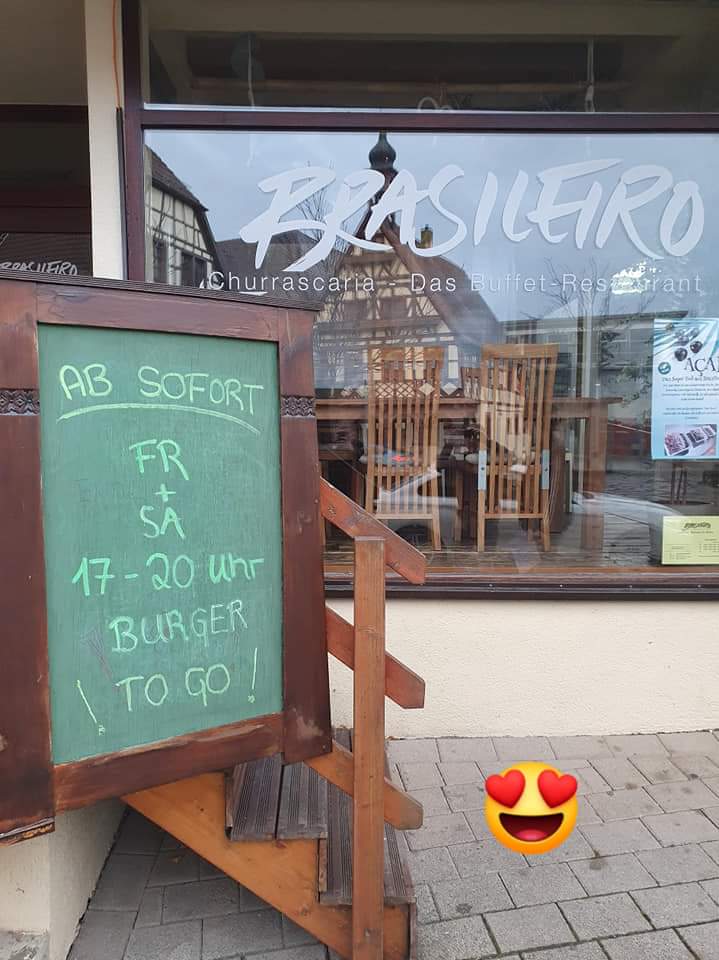 BRASILEIRO
Churrascaria - Das Buffet-Restaurant
BRASILEIRO
AB SOFORT
FR
+
SA
17-20 Uhr
BURGER
! TO GO!
BRASILEIRO